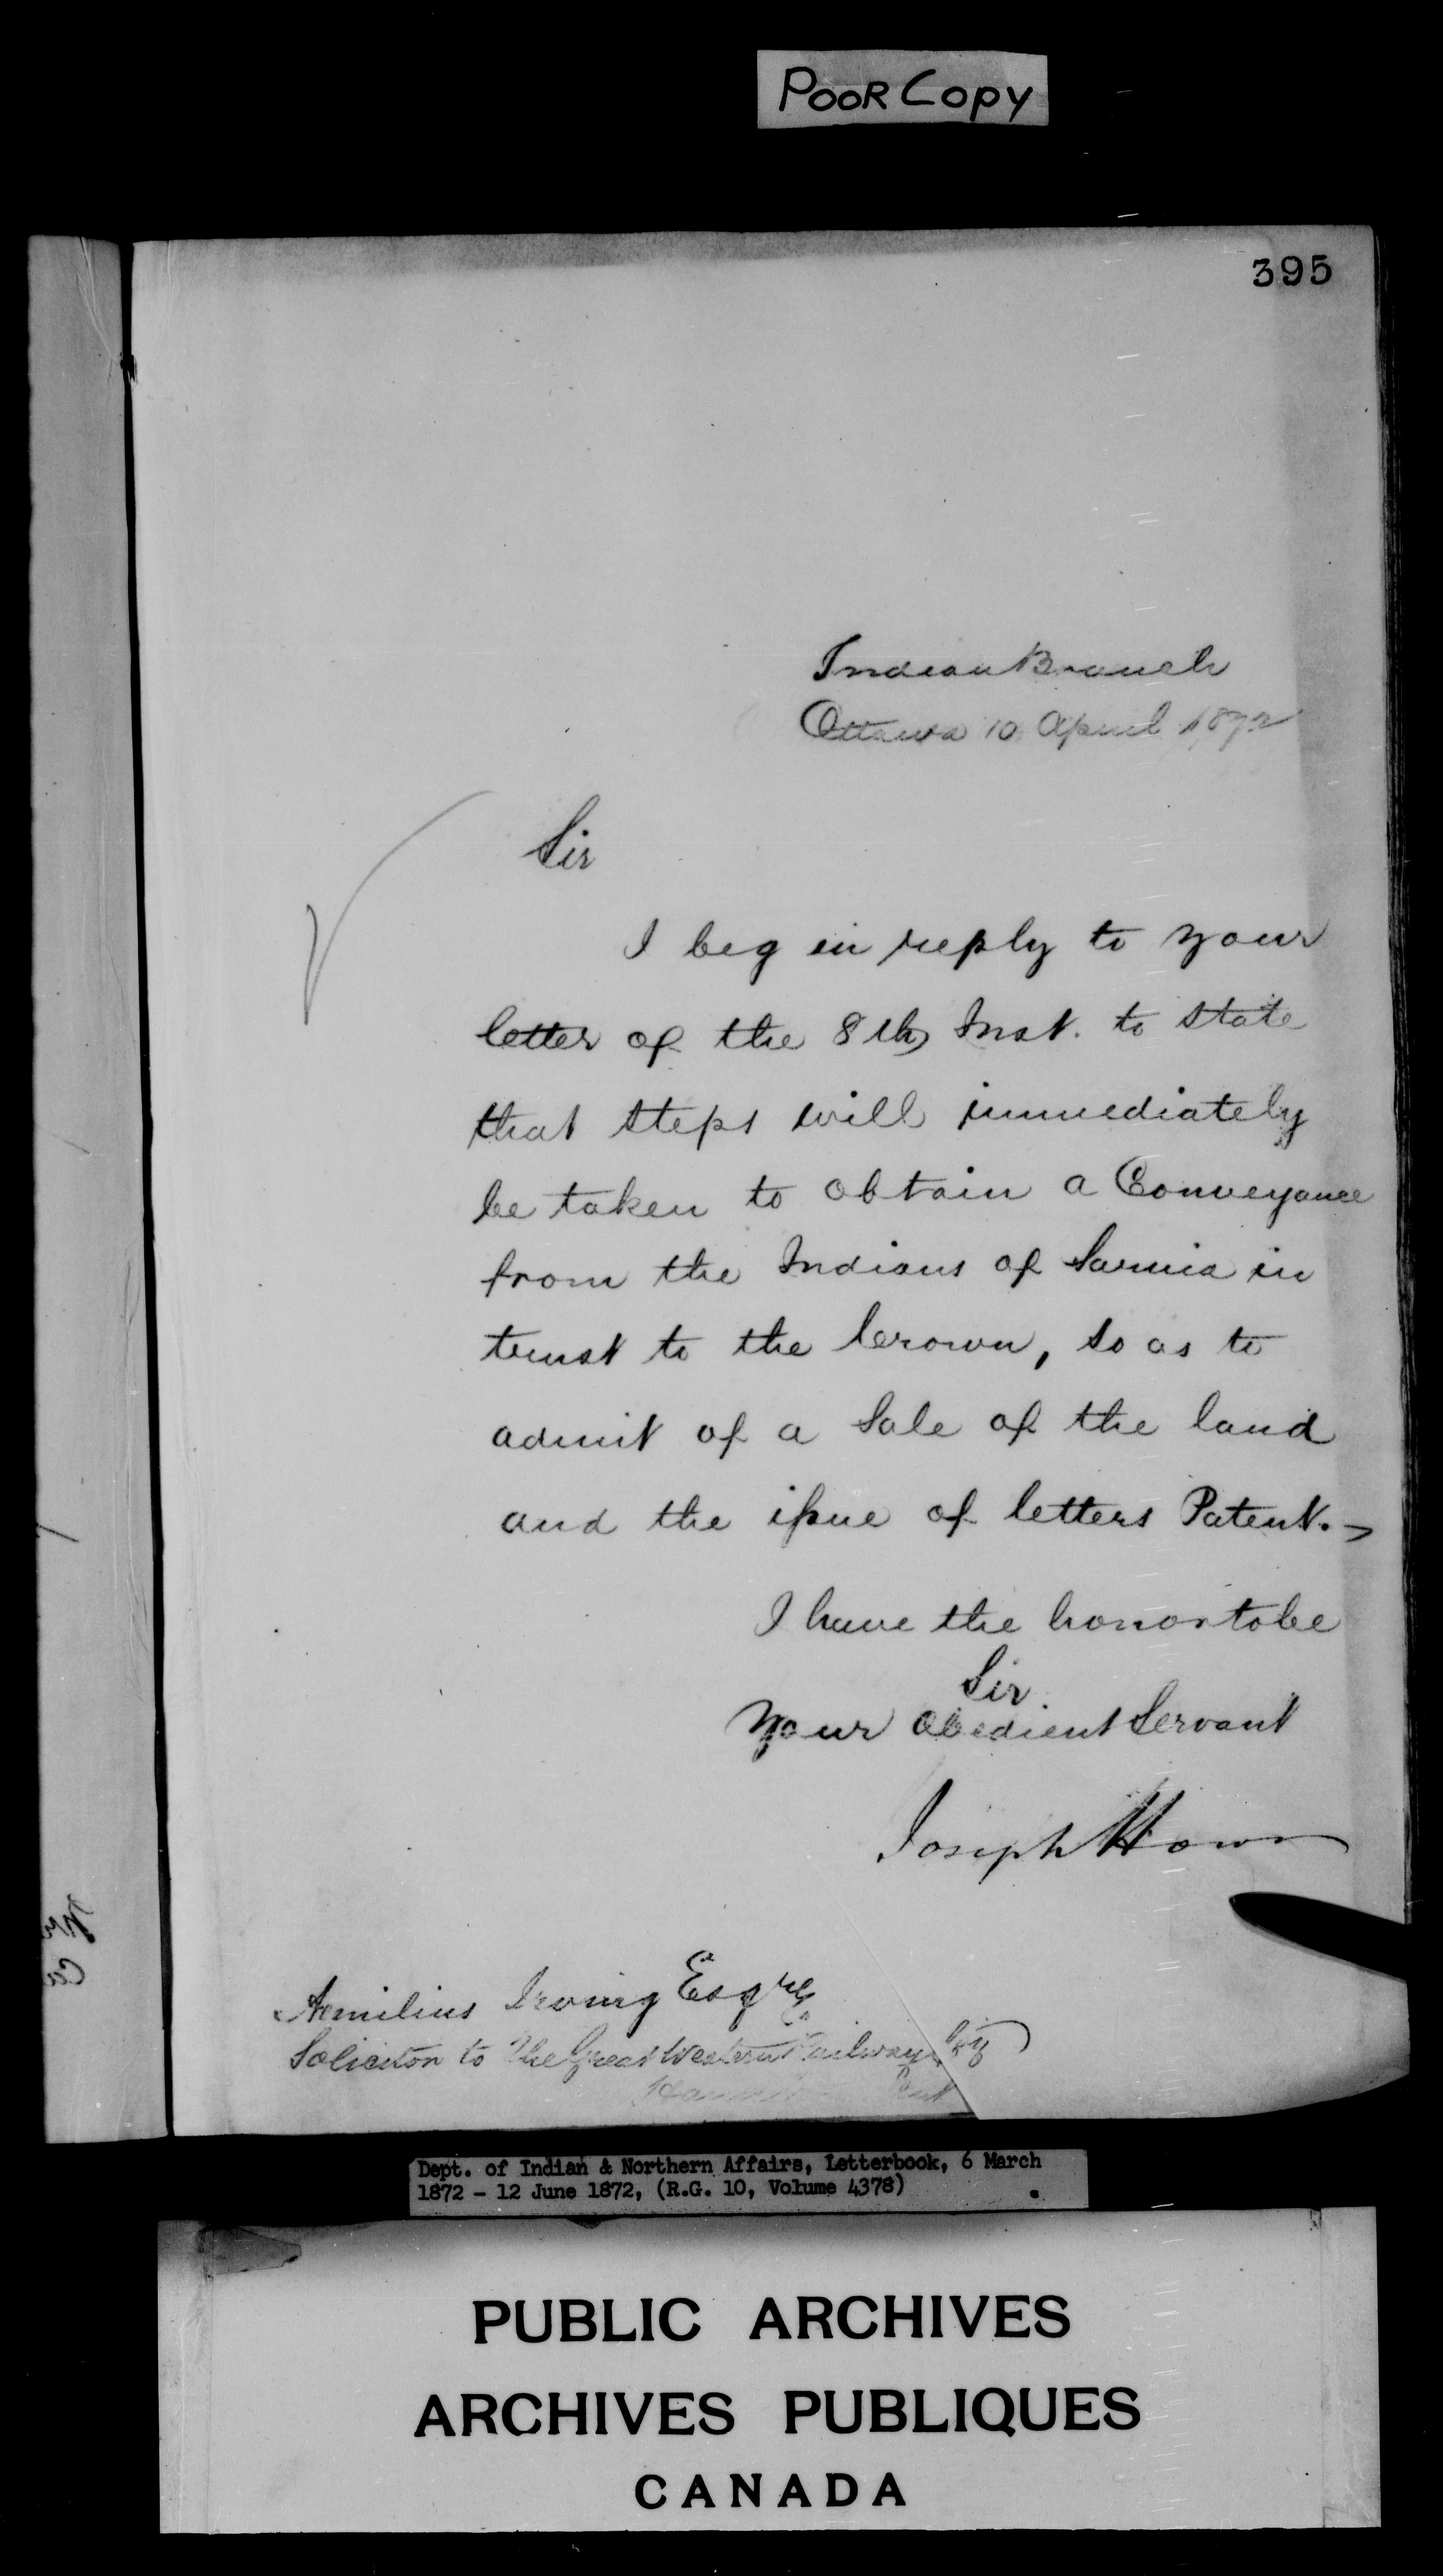 POOR COPY
395
Indian Branch
Ottawa 10 April 1872
Sir
I beg in reply to your
letter of the 8th Inst. to state
that steps will immediately
be taken to obtain a Conveyance
from the Indians of Sarnia in
trust to the Crown, so as to
admit of a Sale of the land
and the issue of letters Patent.
I have the honor to be
Sir
Your Obedient Servant
Joseph Howe
Aemilius Irving Esqre
Solicitor to The Great Western Railway Coy
Dept. of Indian & Northern Affairs, Letterbook, 6 March
1872 - 12 June 1872, (R.G. 10, Volume 4378)
PUBLIC ARCHIVES
ARCHIVES PUBLIQUES
CANADA